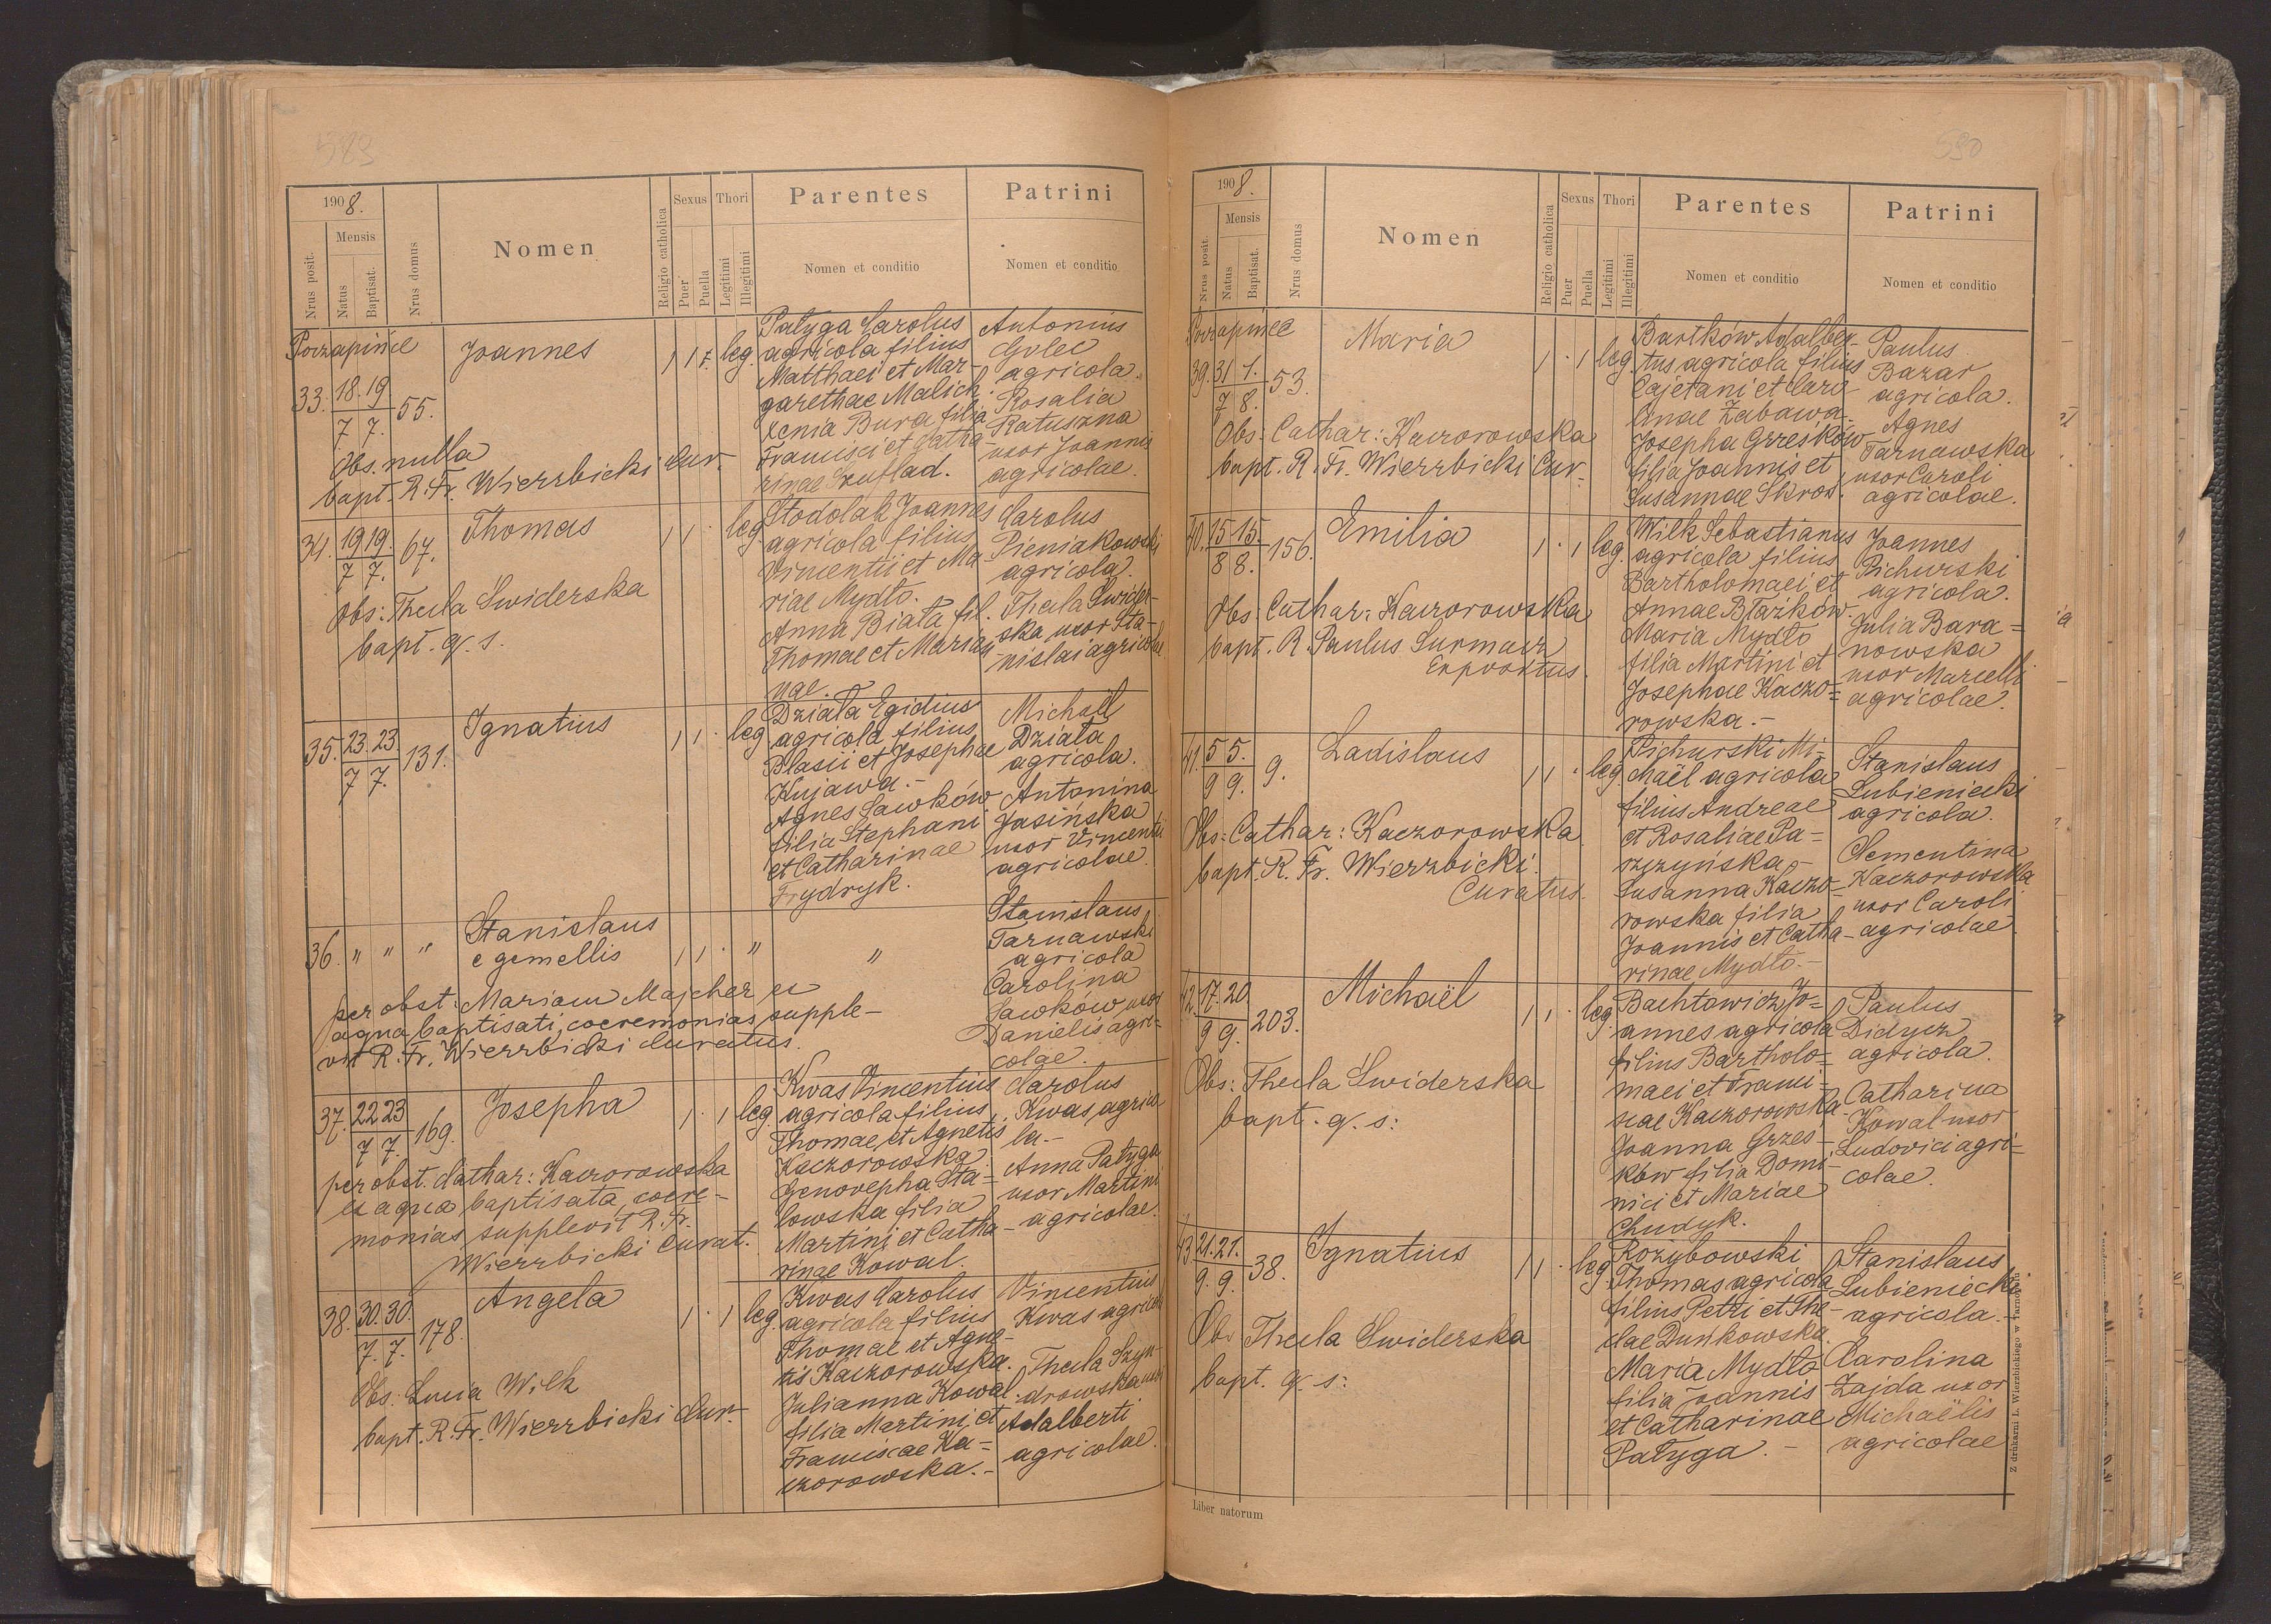 589
1908.
Nrus posit.
Mensis
Natus
Baptisat.
Nrus domus
Nomen
Religio catholica
Sexus
Puer
Puella
Thori
Legitimi
Illegitimi
Parentes
Nomen et conditio
Patrini
Nomen et conditio
Poczapińce
33. 18. 19 55.
7 7.
Joannes
leg.
Patyga Carolus
agricola filius
Matthaei et Mar-
garethae Malich.
Xenia Bura filia
Francisci et Catha-
rinae Szuflad.
Antonius
Golec
agricola.
Rosalia
Ratuszna
uxor Joannis
agricolae.
Obs. nulla
bapt. R. Fr. Wierzbicki Cur.
34. 19 19. 67.
7 7.
Thomas
leg.
Stodolak Joannes
agricola filius
Vincentii et Ma-
riae Mydło.
Anna Biała fil.
Thomae et Marian-
nae.
Carolus
Pieniakowski
agricola.
Thecla Świder-
ska uxor Sta-
nislai agricolae
Obs: Thecla Świderska
bapt. q. s.
35. 23. 23. 131.
7 7.
Ignatius
leg
Działa Egidius
agricola filius
Blasii et Josephae
Kujawa.-
Agnes Sawków
filia Stephani
et Catharinae
Frydryk.
Michaël
Działa
agricola.
Antonina
Jasińska
uxor Vincentii
agricolae.
36. " " "
Stanislaus
e gemellis
"
"
Stanislaus
Tarnawski
agricola
Carolina
Sawków uxor
Danielis agri-
colae.
per obst: Mariam Majcher ex
aqua baptisati, coeremonias supple-
vit R. Fr. Wierzbicki Curatus.
37. 22 23 169.
7 7.
Josepha
leg.
Kwas Vincentius
agricola filius
Thomae et Agnetis
Kaczorowska.
Genovepha Sta-
lowska filia
Martini et Catha-
rinae Kowal.
Carolus
Kwas agrico-
la.-
Anna Patyga
uxor Martini
agricolae.
per obst. Cathar: Kaczorowska
ex aqua baptisata, coere-
monias supplevit R. Fr.
Wierzbicki Curat.
38. 30. 30. 178.
7. 7.
Angela
leg.
Kwas Carolus
agricola filius
Thomae et Agne-
tis Kaczorowska.
Julianna Kowal
filia Martini et
Franciscae Ka-
czorowska.-
Vincentius
Kwas agricola
Thecla Szyn-
drowska uxor
Adalberti
agricolae.
Obs: Lucia Wilk
bapt. R. Fr. Wierzbicki Cur.
590
1908.
Nrus posit.
Mensis
Natus
Baptisat.
Nrus domus
Nomen
Religio catholica
Sexus
Puer
Puella
Thori
Legitimi
Illegitimi
Parentes
Nomen et conditio
Patrini
Nomen et conditio
Poczapińce
39. 31 1. 53.
7 8.
Maria
leg.
Bartków Adalber-
tus agricola filius
Cajetani et Caro-
linae Zabawa.
Josepha Grześków
filia Joannis et
Susannae Skrod.
Paulus
Bazar
agricola.
Agnes
Tarnawska
uxor Caroli
agricolae.
Obs: Cathar: Kaczorowska
bapt. R. Fr. Wierzbicki Cur.
40. 15 15. 156.
8 8.
Emilia
leg.
Wilk Sebastianus
agricola filius
Bartholomaei et
Annae Błażków.
Maria Mydło
filia Martini et
Josephae Kaczo-
rowska.-
Joannes
Pichurski
agricola.
Julia Bara-
nowska
uxor Marcelli
agricolae.
Obs: Cathar: Kaczorowska
bapt. R. Paulus Surmacz
Expositus.
41. 5 5. 9.
9 9.
Ladislaus
leg.
Pichurski Mi-
chaël agricola
filius Andreae
et Rosaliae Pa-
szczyńska.-
Susanna Kaczo-
rowska filia
Joannis et Catha-
rinae Mydło.-
Stanislaus
Lubieniecki
agricola.
Clementina
Kaczorowska
uxor Caroli
agricolae.
Obs: Cathar: Kaczorowska
bapt. R. Fr. Wierzbicki
Curatus.
42. 17. 20. 203.
9 9.
Michaël
leg.
Bachtowicz Jo-
annes agricola
filius Bartholo-
maei et Franci-
scae Kaczorowska
Joanna Grześ-
ków filia Domi-
nici et Mariae
Chudyk.
Paulus
Didycz
agricola.
Catharina
Kowal uxor
Ludovici agri-
colae.
Obs: Thecla Świderska
bapt. q. s:
43. 21. 21. 38.
9. 9.
Ignatius
leg.
Rozybowski
Thomas agricola
filius Petri et The-
clae Dunkowska.
Maria Mydło
filia Joannis
et Catharinae
Patyga.-
Stanislaus
Lubieniecki
agricola.-
Carolina
Zajda uxor
Michaëlis
agricolae
Obs Thecla Świderska
bapt. q. s:
Liber natorum
Z drukarni L. Wierzbickiego w Tarnopolu